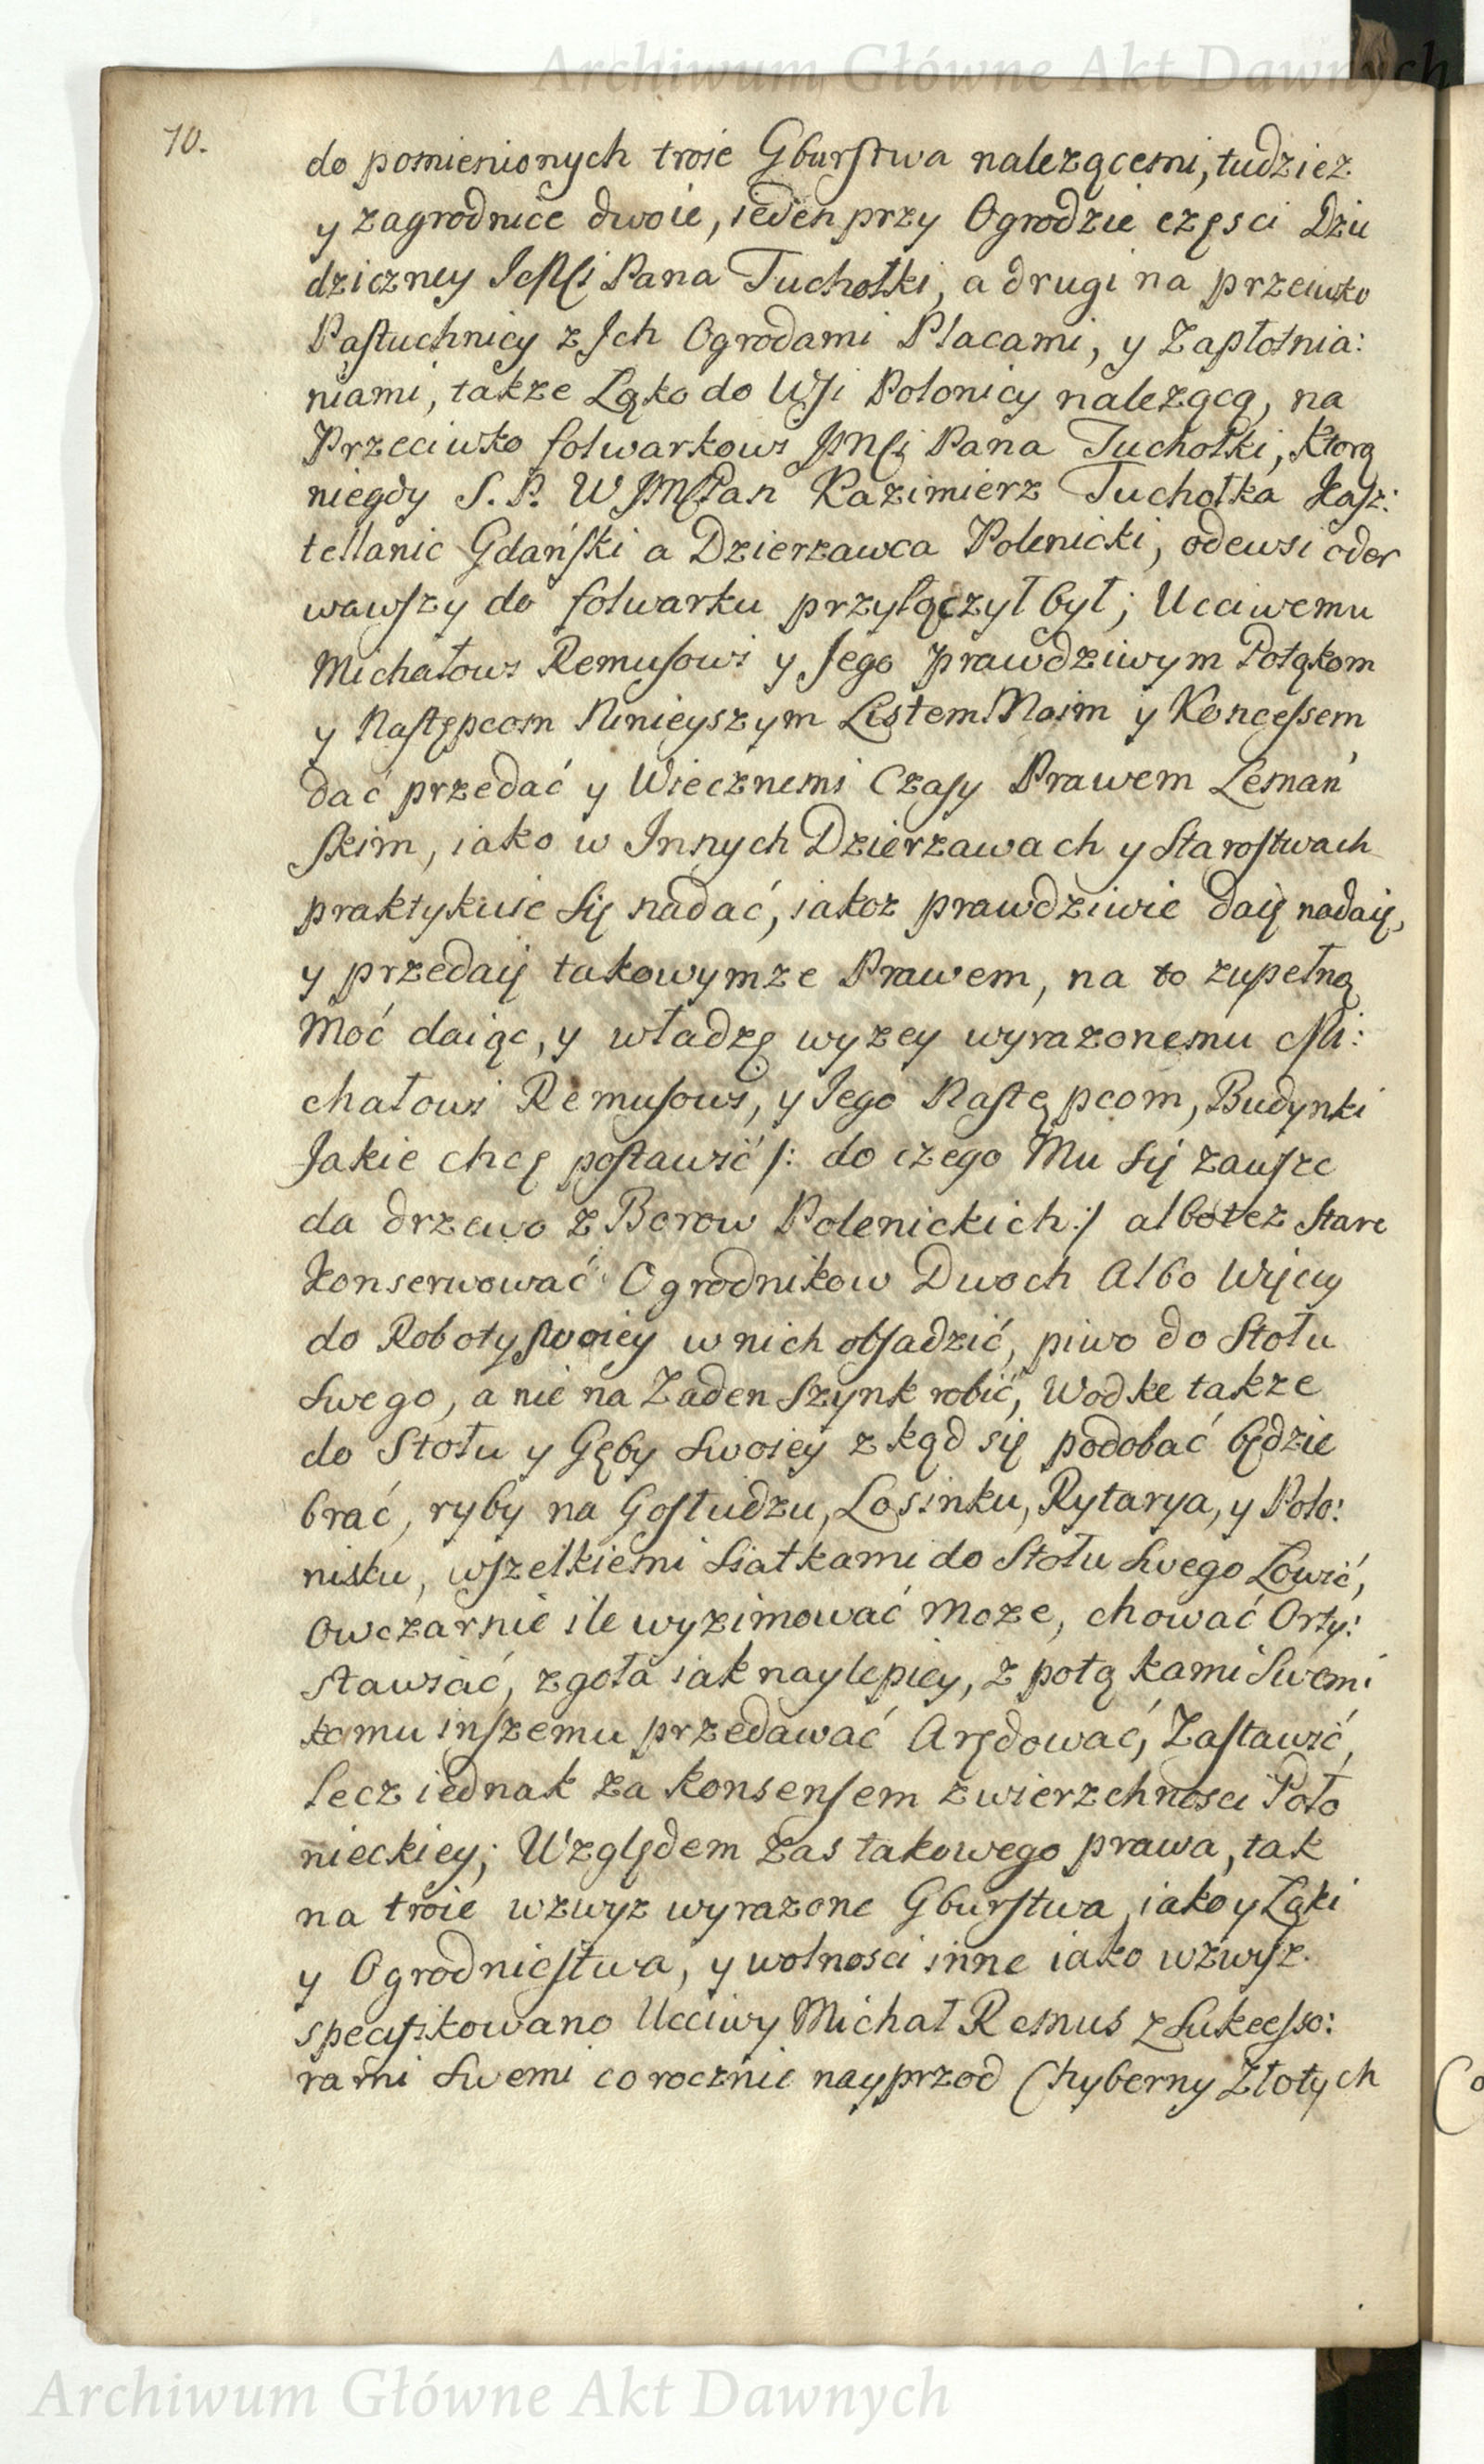 Archiwum Główne Akt Dawnych
10.
do pomienionych troie Gburstwa nalezącemi, tudziez
y zagrodnice dwoie, ieden przy Ogrodzie częsci Dzie
dziczney Pana Tuchołki, a drugi na przeciwko
Pastuchnicy z Ich Ogrodami Placami, y Zapłotnia:
niami, takze Ląko do Wsi Polonicy nalezącą, na
Przeciwko folwarkowi Pana Tuchołki, ktorą
niegdy S. P. W JMPan Kazimierz Tuchołka Kasz:
tellanic Gdański a Dzierzawca Polenicki, odewsi oder
wawszy do folwarku przyłączył był; Ucciwemu
Michałowi Remusowi y Jego prawdziwym Potąkom
y Następcom Ninieyszym Listem Moim y Koncessem
dać przedać y Wiecznemi Czasy Prawem Leman
skim, iako w Innych Dzierzawach y Starostwach
praktykuie się nadać, iakoz prawdziwie daię nadaię,
y przedaię takowymze Prawem, na to zupełną
Moć daiąc, y władzę wyzey wyrazonemu Mi:
chałowi Remusowi, y Jego Następcom, Budynki
Jakie chcę postawić /: do czego Mu się zawsze
da drzewo z Borow Polenickich :/ albotez Stare
Konserwować Ogrodnikow Dwoch Albo Więcy
do Roboty swoiey w nich obsadzić, piwo do Stołu
swego, a nie na Zaden Szynk robić, Wodke takze
do Stołu y Gęby swoiey z kąd się podobać będzie
brać, ryby na Gostudzu, Losinku, Rytarya, y Polo:
nisku, wszelkiemi Siatkami do Stołu swego Lowić,
Owczarnie ile wyzimować moze, chować Orty:
stawiać, zgoła iak naylepiey, z potąkami swemi
komu inszemu przedawać Aręndować, Zastawić,
lecz iednak za konsensem zwierzchnosci Poło
nieckiey; Względem zas takowego prawa, tak
na troie wzwyz wyrazone Gburstwa, iako y Ląki
y Ogrodnicstwa, y wolnosci inne iako wzwysz
specifikowano Ucciwy Michał Remus z Sukcesso:
rami swemi corocznie nayprzod Chyberny Złotych
Archiwum Główne Akt Dawnych